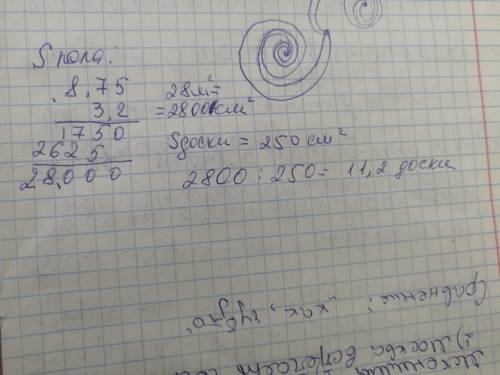 S пола:
8,75
3,2
1750
2625
28,000
28м²=
=2800см²
Sдоски = 250 см²
2800 : 250 = 11,2 доски
Сравнение: "как, будто"
1) Москва встречает